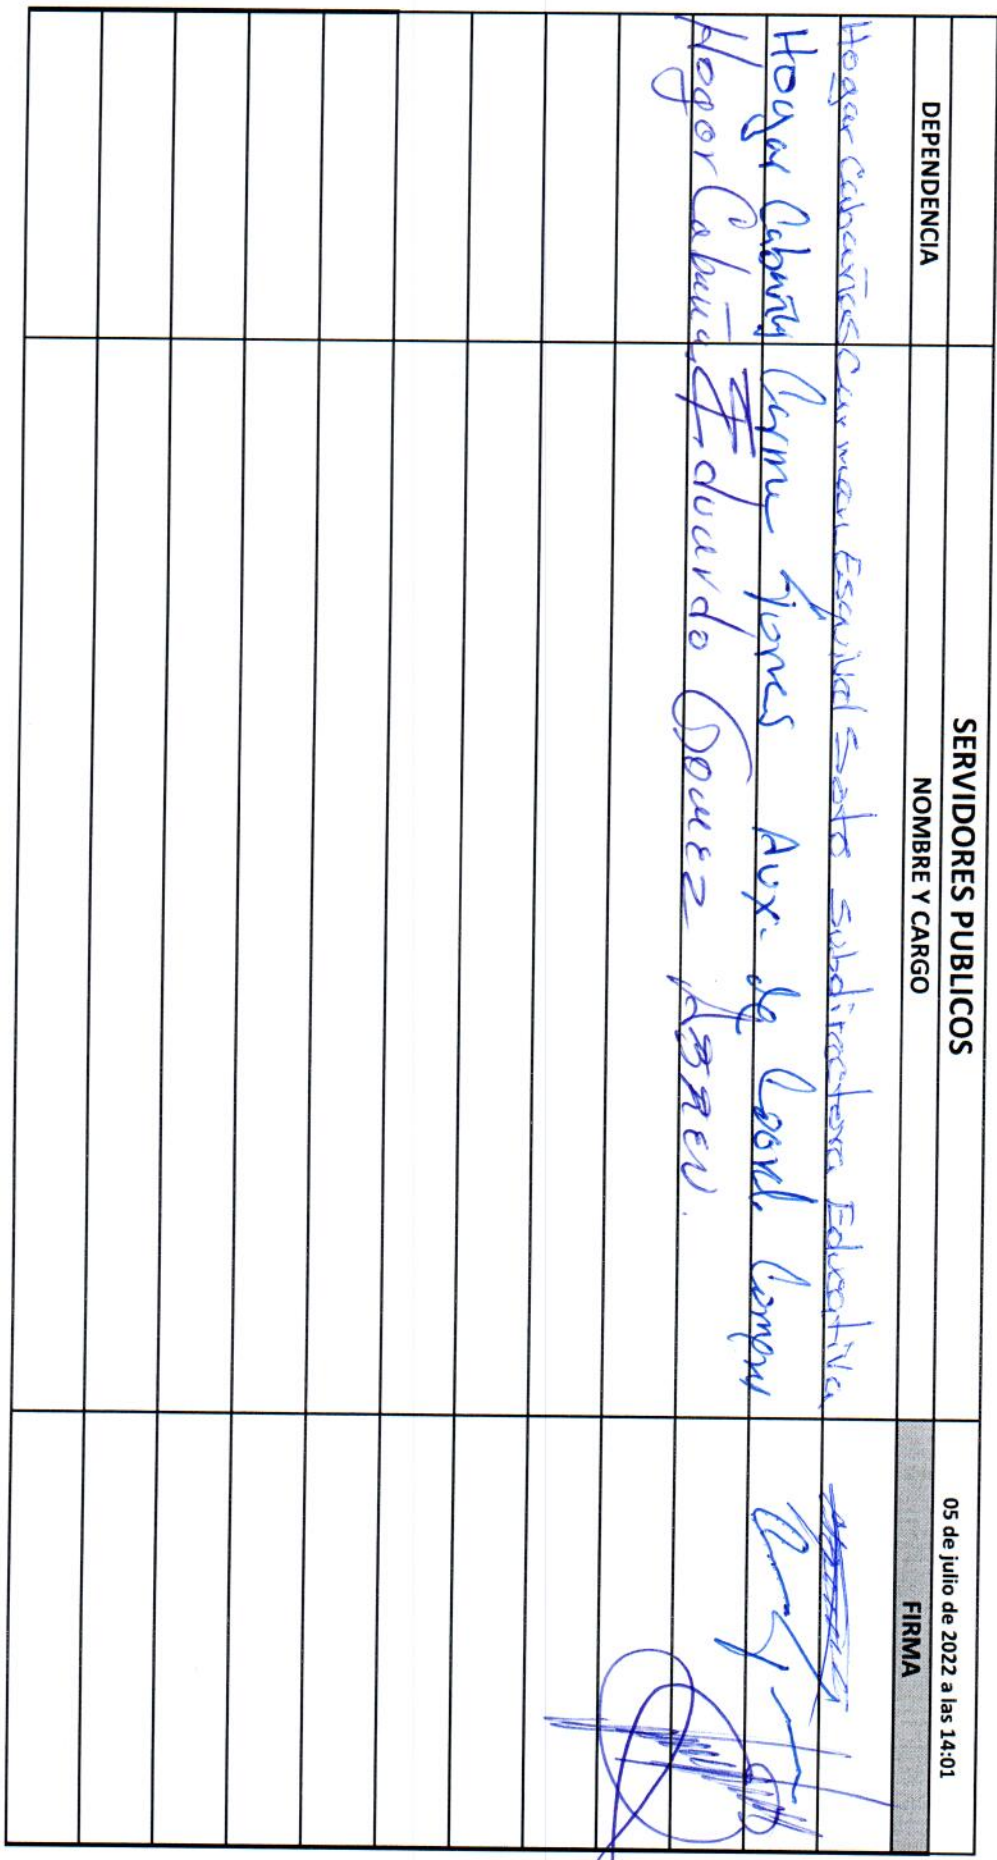 SERVIDORES PUBLICOS
05 de julio de 2022 a las 14:01
DEPENDENCIA NOMBRE Y CARGO FIRMA
Hogar Cabañas Carmen Esquivel Soto Subdirectora Educativa
Hogar Cabañas Aux. de Coord. Compra
Hogar Cabañas Eduardo Gomez